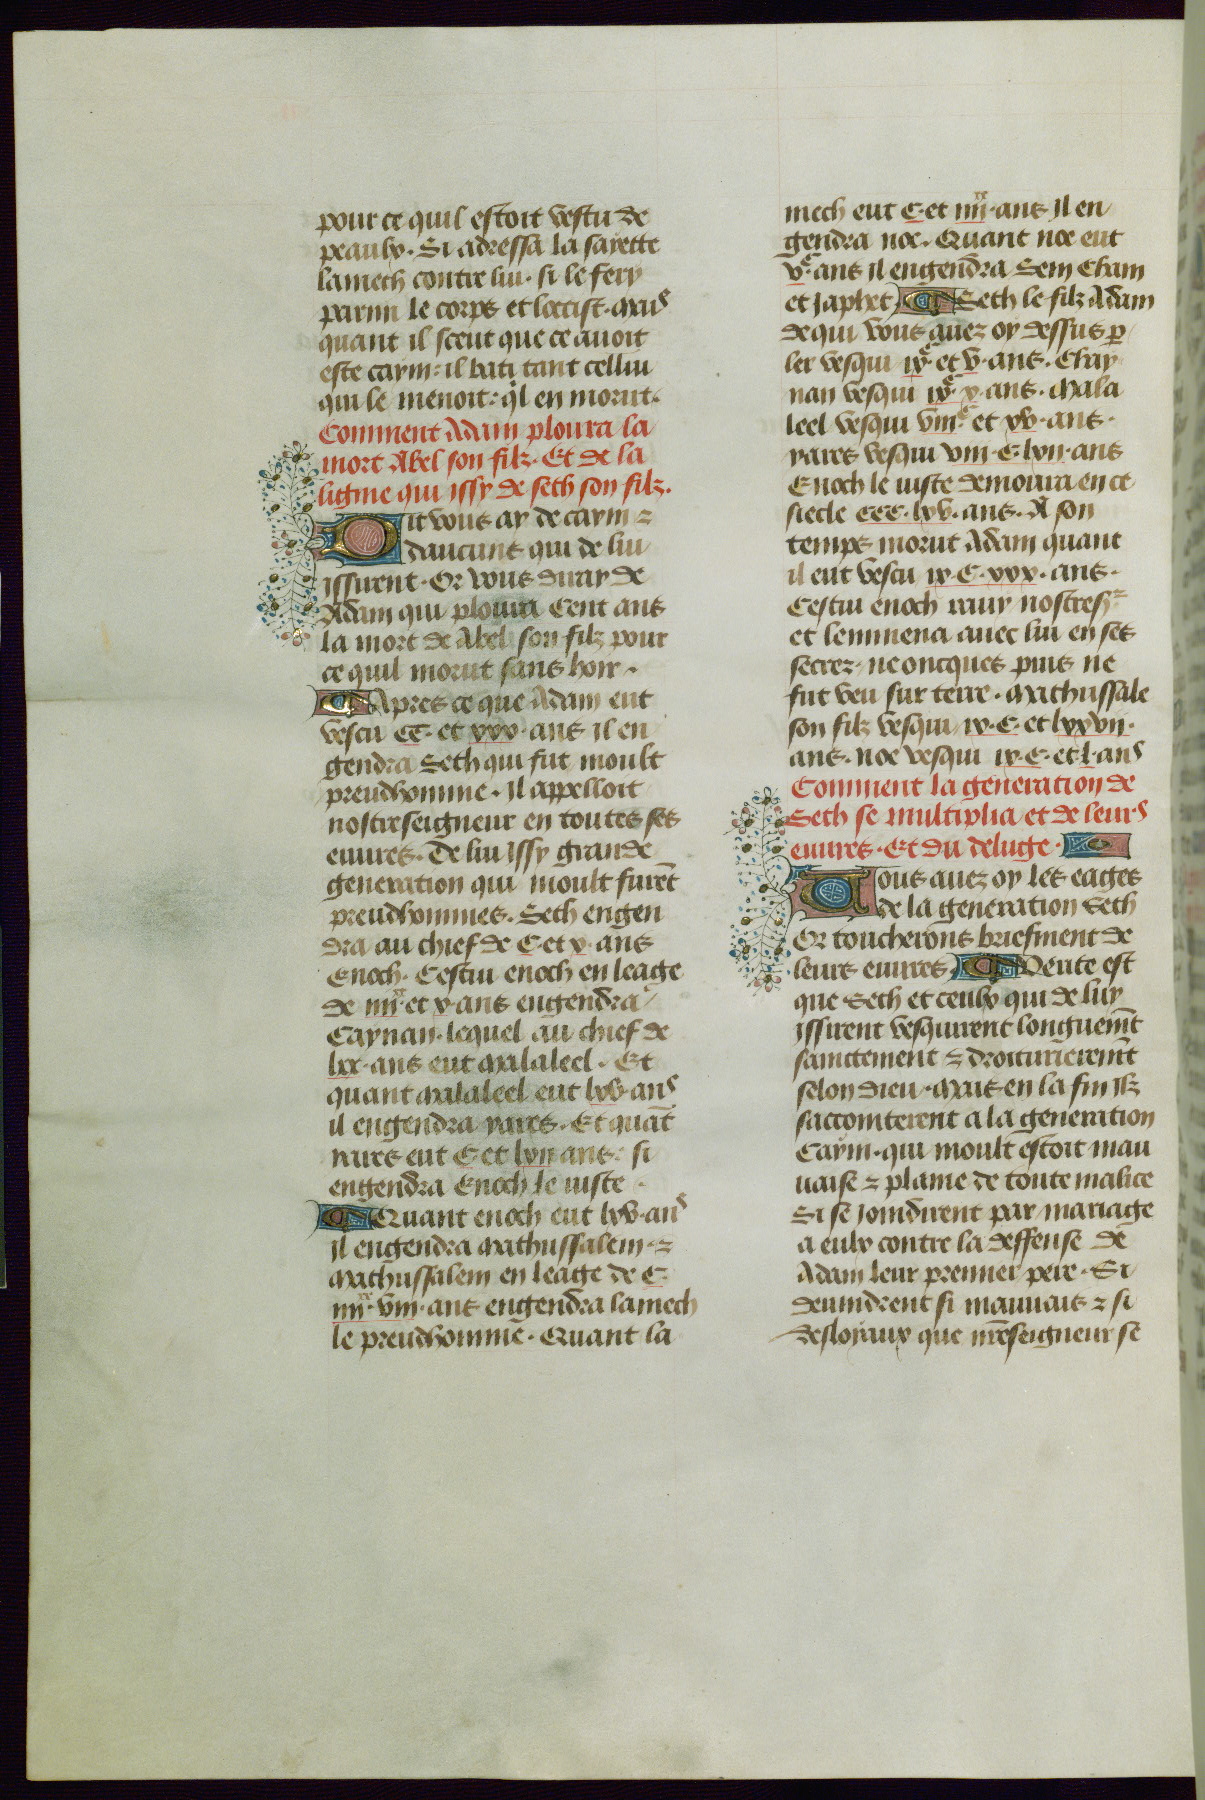 pour ce quil estoit vestu de
peaulx. Si adressa la sayette
lamech contre lui. si le fery
parmi le corps et loccist. Mais
quant il sceut que ce auoit
este caym: il bati tant cellui
qui le menoit: ql en morut.
Comment Adam ploura la
mort Abel son filz. Et de la
lignie qui issy de seth son filz.
Dit vous ay de caym ⁊
daucuns qui de lui
issirent. Or vous diray de
Adam qui ploura Cent ans
la mort de Abel son filz pour
ce quil morut sans hoir.
Apres ce que Adam eut
vescu CC. et xxx. ans il en
gendra Seth qui fut moult
preudhomme. Il appelloit
nostreseigneur en toutes ses
euures. De lui issy grande
generation qui moult furēt
preudhommes. Seth engen
dra au chief de C. et v. ans
Enoch. Cestui enoch en leage
de iiii.xx et x. ans engendra
Caynan. lequel au chief de
lxx. ans eut Malaleel. Et
quant Malaleel eut lxv. ans
il engendra yares. Et quāt
yares eut C. et lxii ans. si
engendra Enoch le iuste.
Quant enoch eut lxv. ans
il engendra Mathussalem. ⁊
Mathussalem en leage de C.
iiii.xx viii. ans engendra lamech
le preudhomme. Quant la
mech eut C. et iiii.xx ans Il en
gendra noe. Quant noe eut
v.C ans il engendra Sem Cham
et Japhet. Seth le filz Adam
de qui vous auez oy dessus p̄
ler vesqui ix.C et v. ans. Chay
nan vesqui ix.C x. ans. Mala
leel vesqui viii.C et xv. ans.
yares vesqui viii. C. lxii. ans
Enoch le iuste demoura en ce
siecle CCC. lxv. ans. A son
temps morut Adam quant
il eut vescu ix. C. xxx. ans.
Cestui enoch rauy nostres.r
et lemmena auec lui en ses
secrez. ne oncques puis ne
fut veu sur terre. Mathussale
son filz vesqui ix. C. et lxxvii.
ans. Noe vesqui ix. C. et l. ans
Comment la generation de
Seth se multiplia et de leurs
euures. Et du deluge.
Vous auez oy les eages
de la generation Seth
Or toucherons briefment de
leurs euures. Verite est
que Seth et ceulx qui de luy
issirent vesquirent longuemēt
sainctement ⁊ droicturieremēt
selon dieu. Mais en la fin ilz
saccointerent a la generation
Caym. qui moult estoit mau
uaise ⁊ plaine de toute malice
Si se Joindirent par mariage
a eulx contre la deffense de
Adam leur premier pere. Si
deuindrent si mauuais ⁊ si
desloyaux que nr̄eseigneur se